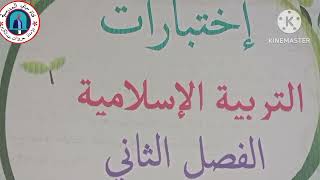 إختبارات
التربية الإسلامية
الفصل الثاني
KINEMASTER